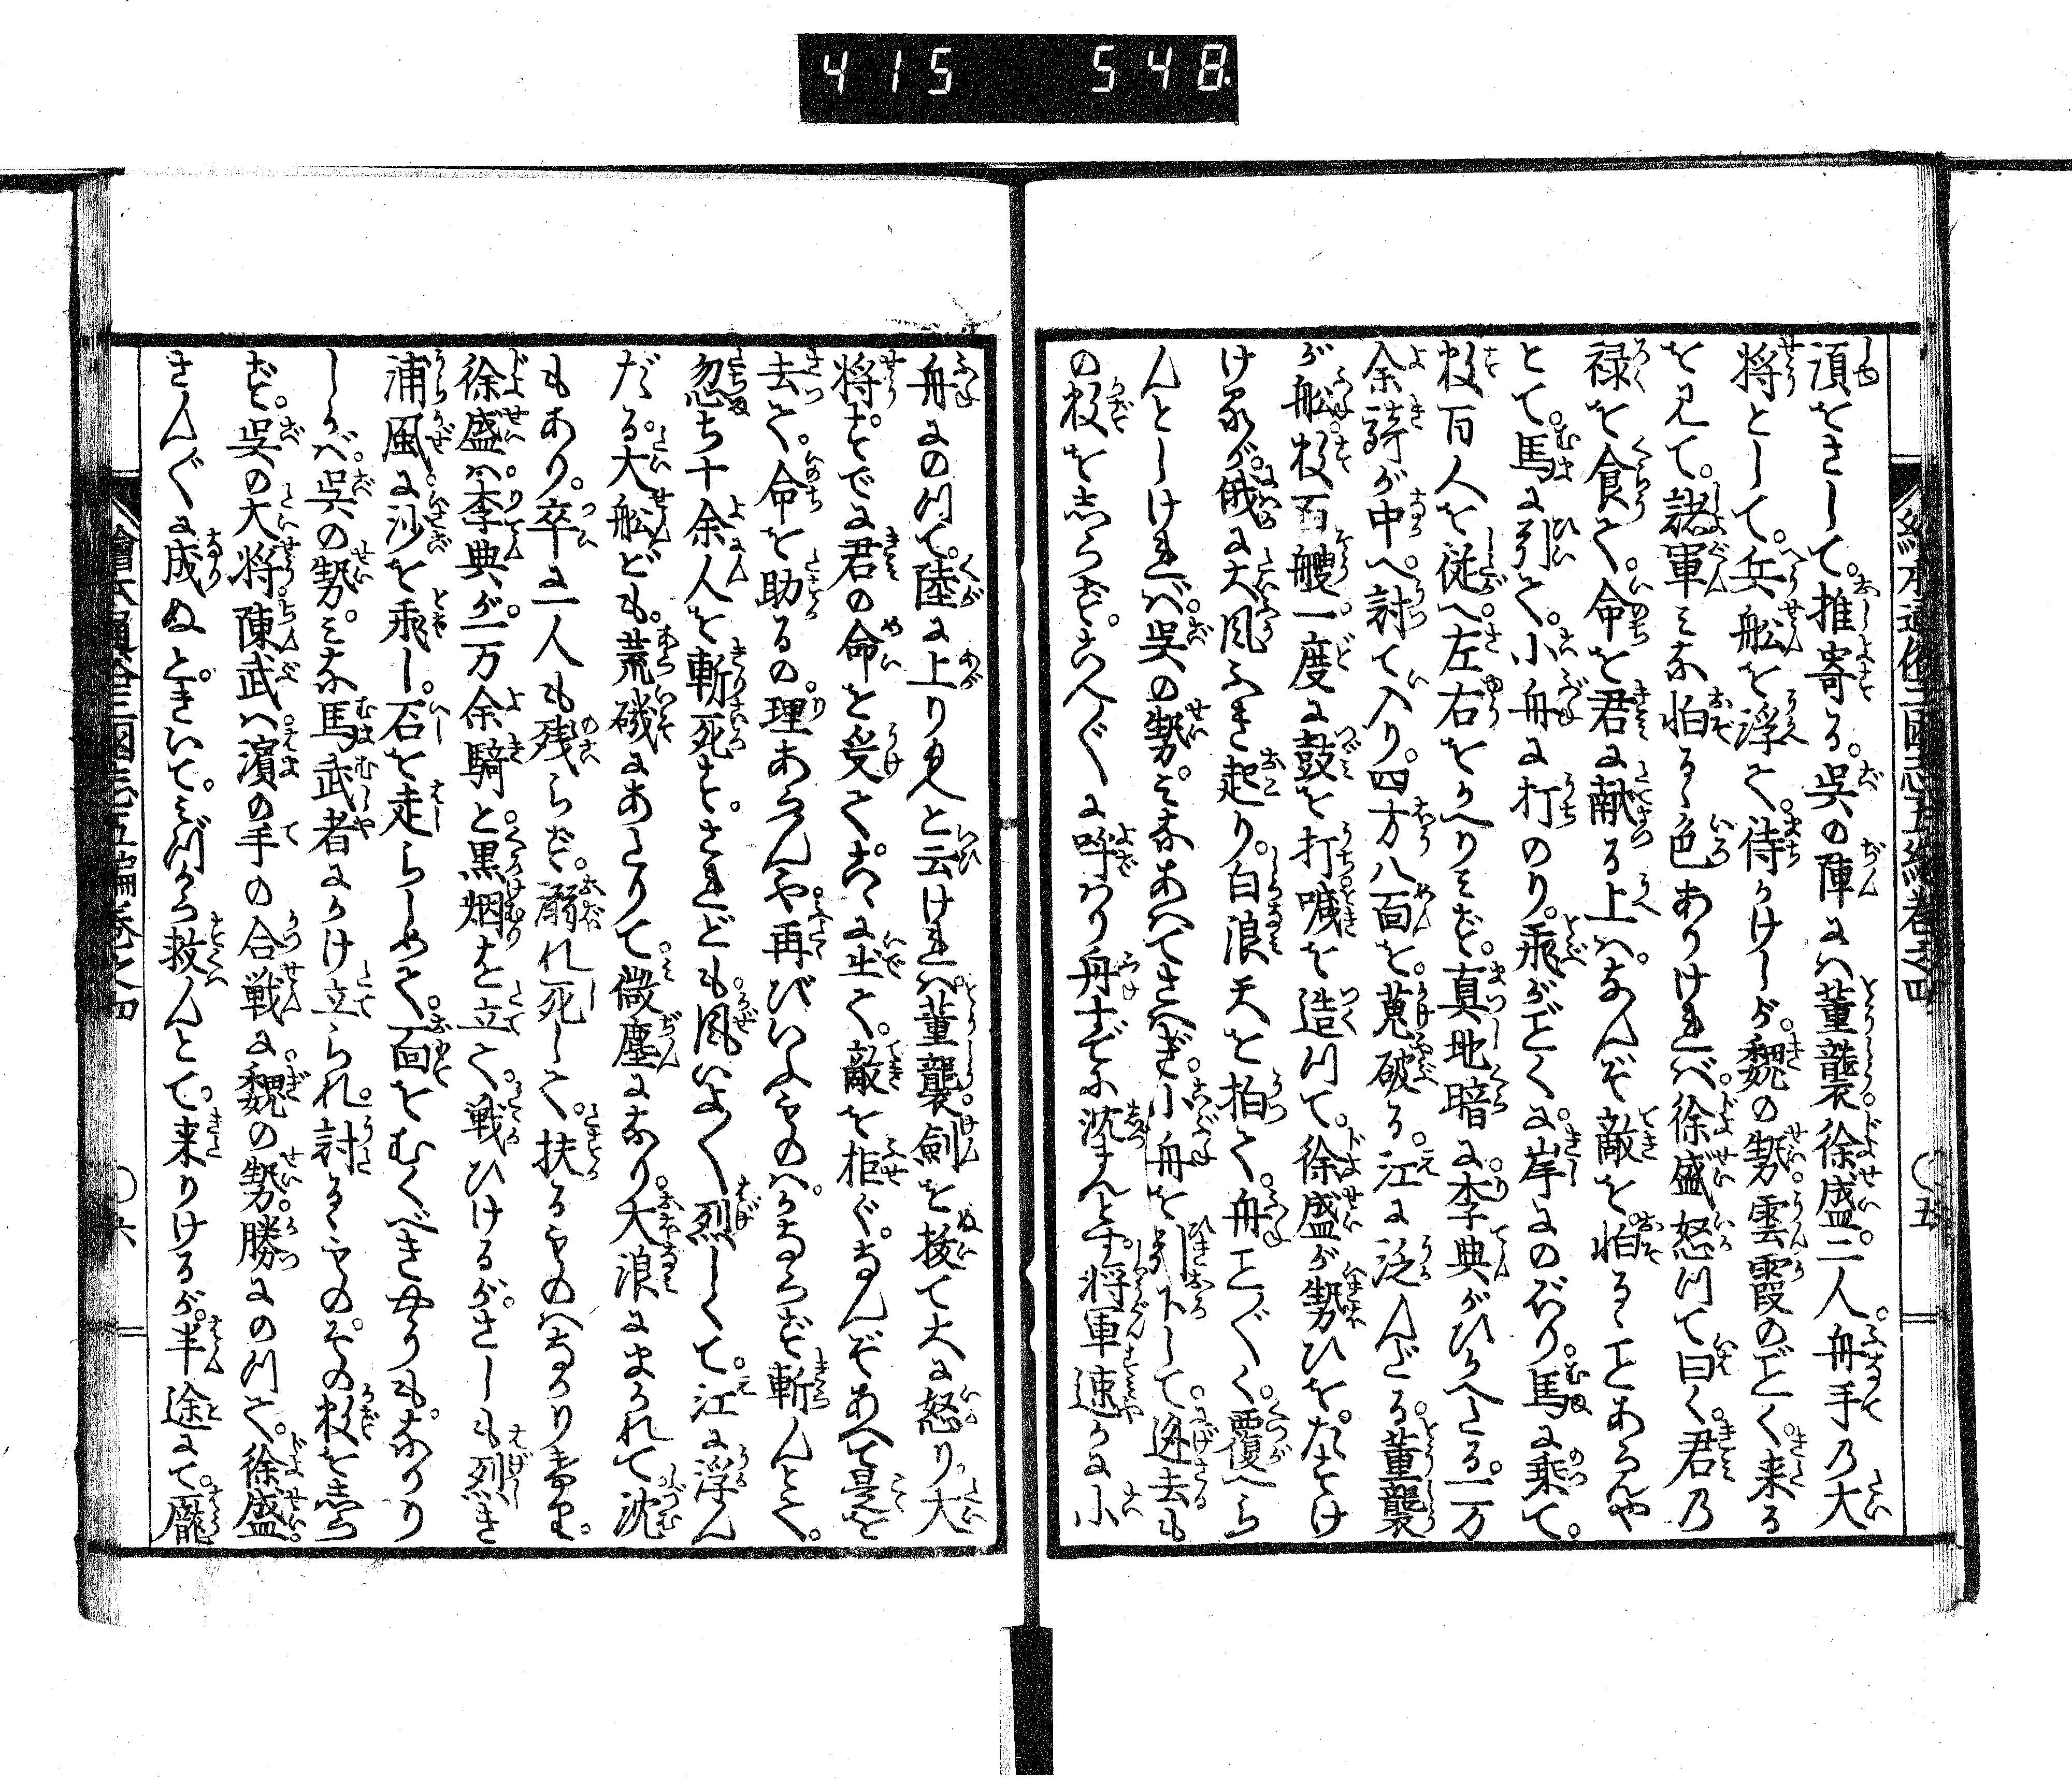 415 548
繪本通俗三國志五編卷之四 〇五
須をさして。推寄る。呉の陣にハ董襲。徐盛。二人。舟手乃大
将として。兵舩を浮て。待うけしが。魏の勢。雲霞のごとく。来る
を见て。諸軍ミな怕るゝ色ありけれバ。徐盛怒つて曰く。君乃
禄を食て。命を君に献る上ハ。なんぞ敵を怕るゝことあらんや
とて。馬に引て。小舟に打のり。飛がごとくに。岸にのぼり。馬に乗て。
数百人を従へ。左右をかへりミず。真地暗に。李典がひかへたる。一万
余騎が中へ。討て入り。四方八面を。蒐破る。江に泛んだる。董襲
が舩。数百艘。一度に鼓を打。喊を造つて。徐盛が勢ひを。たすけ
けるが。俄に大风ふき起り。白浪天を拍て。舟こと〴〵く。覆へら
んとしけれバ。呉の勢。ミなあハてさハぎ。小舟を引下して。迯去も
の数をしらず。さん〴〵に呼ハり舟すでに沈まんとす。将軍速かに小
舟にのつて。陸に上り玉へと云けれバ。董襲。劍を拔て大に怒り。大
将すでに君の命を受て。こゝに出て。敵を拒ぐ。なんぞあへて是を
去て。命を助るの。理あらんや。再びいふものハ。かならず斬んとて。
忽ち十余人を斬死す。されども。風いよ〳〵烈しくて。江に浮ん
だる。大舩ども。荒磯にあたりて。微塵になり。大浪にまかれて沈
もあり。卒に一人も残らず。溺れ死して。扶るものハなかりけり。
徐盛ハ。李典が。一万余騎と。黒烟を立て。戦ひけるが。さしも烈き
浦風に。沙を飛し。石を走らしめて。面をむくべきやうも。なかり
しかバ。呉の勢。ミな馬武者にかけ立られ。討るゝもの。その数をしら
ず。呉の大将陳武ハ。濱の手の合戦に。魏の勢。勝にのつて。徐盛。
さん〴〵に成ぬと。きいて。ミづから救んとて。来りけるが。半途にて。龐
繪本通俗三國志五編卷之四 〇六